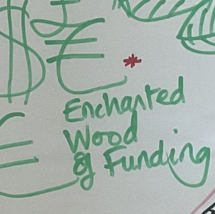 $ £ € *
Enchanted
Wood
€
& Funding